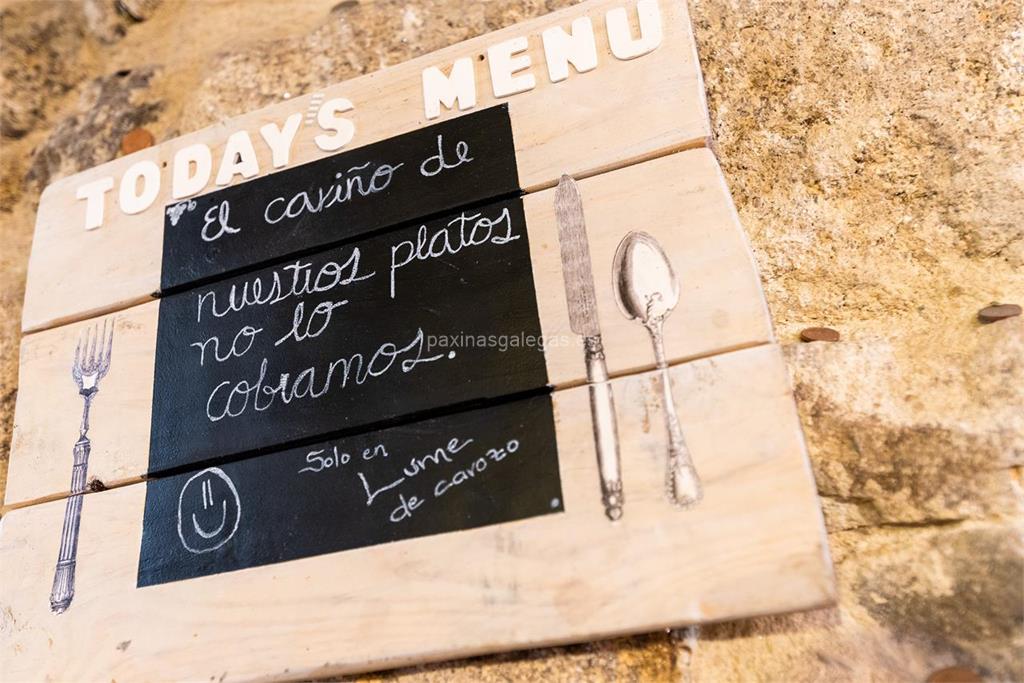 TODAY'S MENU
El cariño de
nuestros platos
no lo
cobramos.
Solo en
Lume
de carozo
paxinasgalegas.es